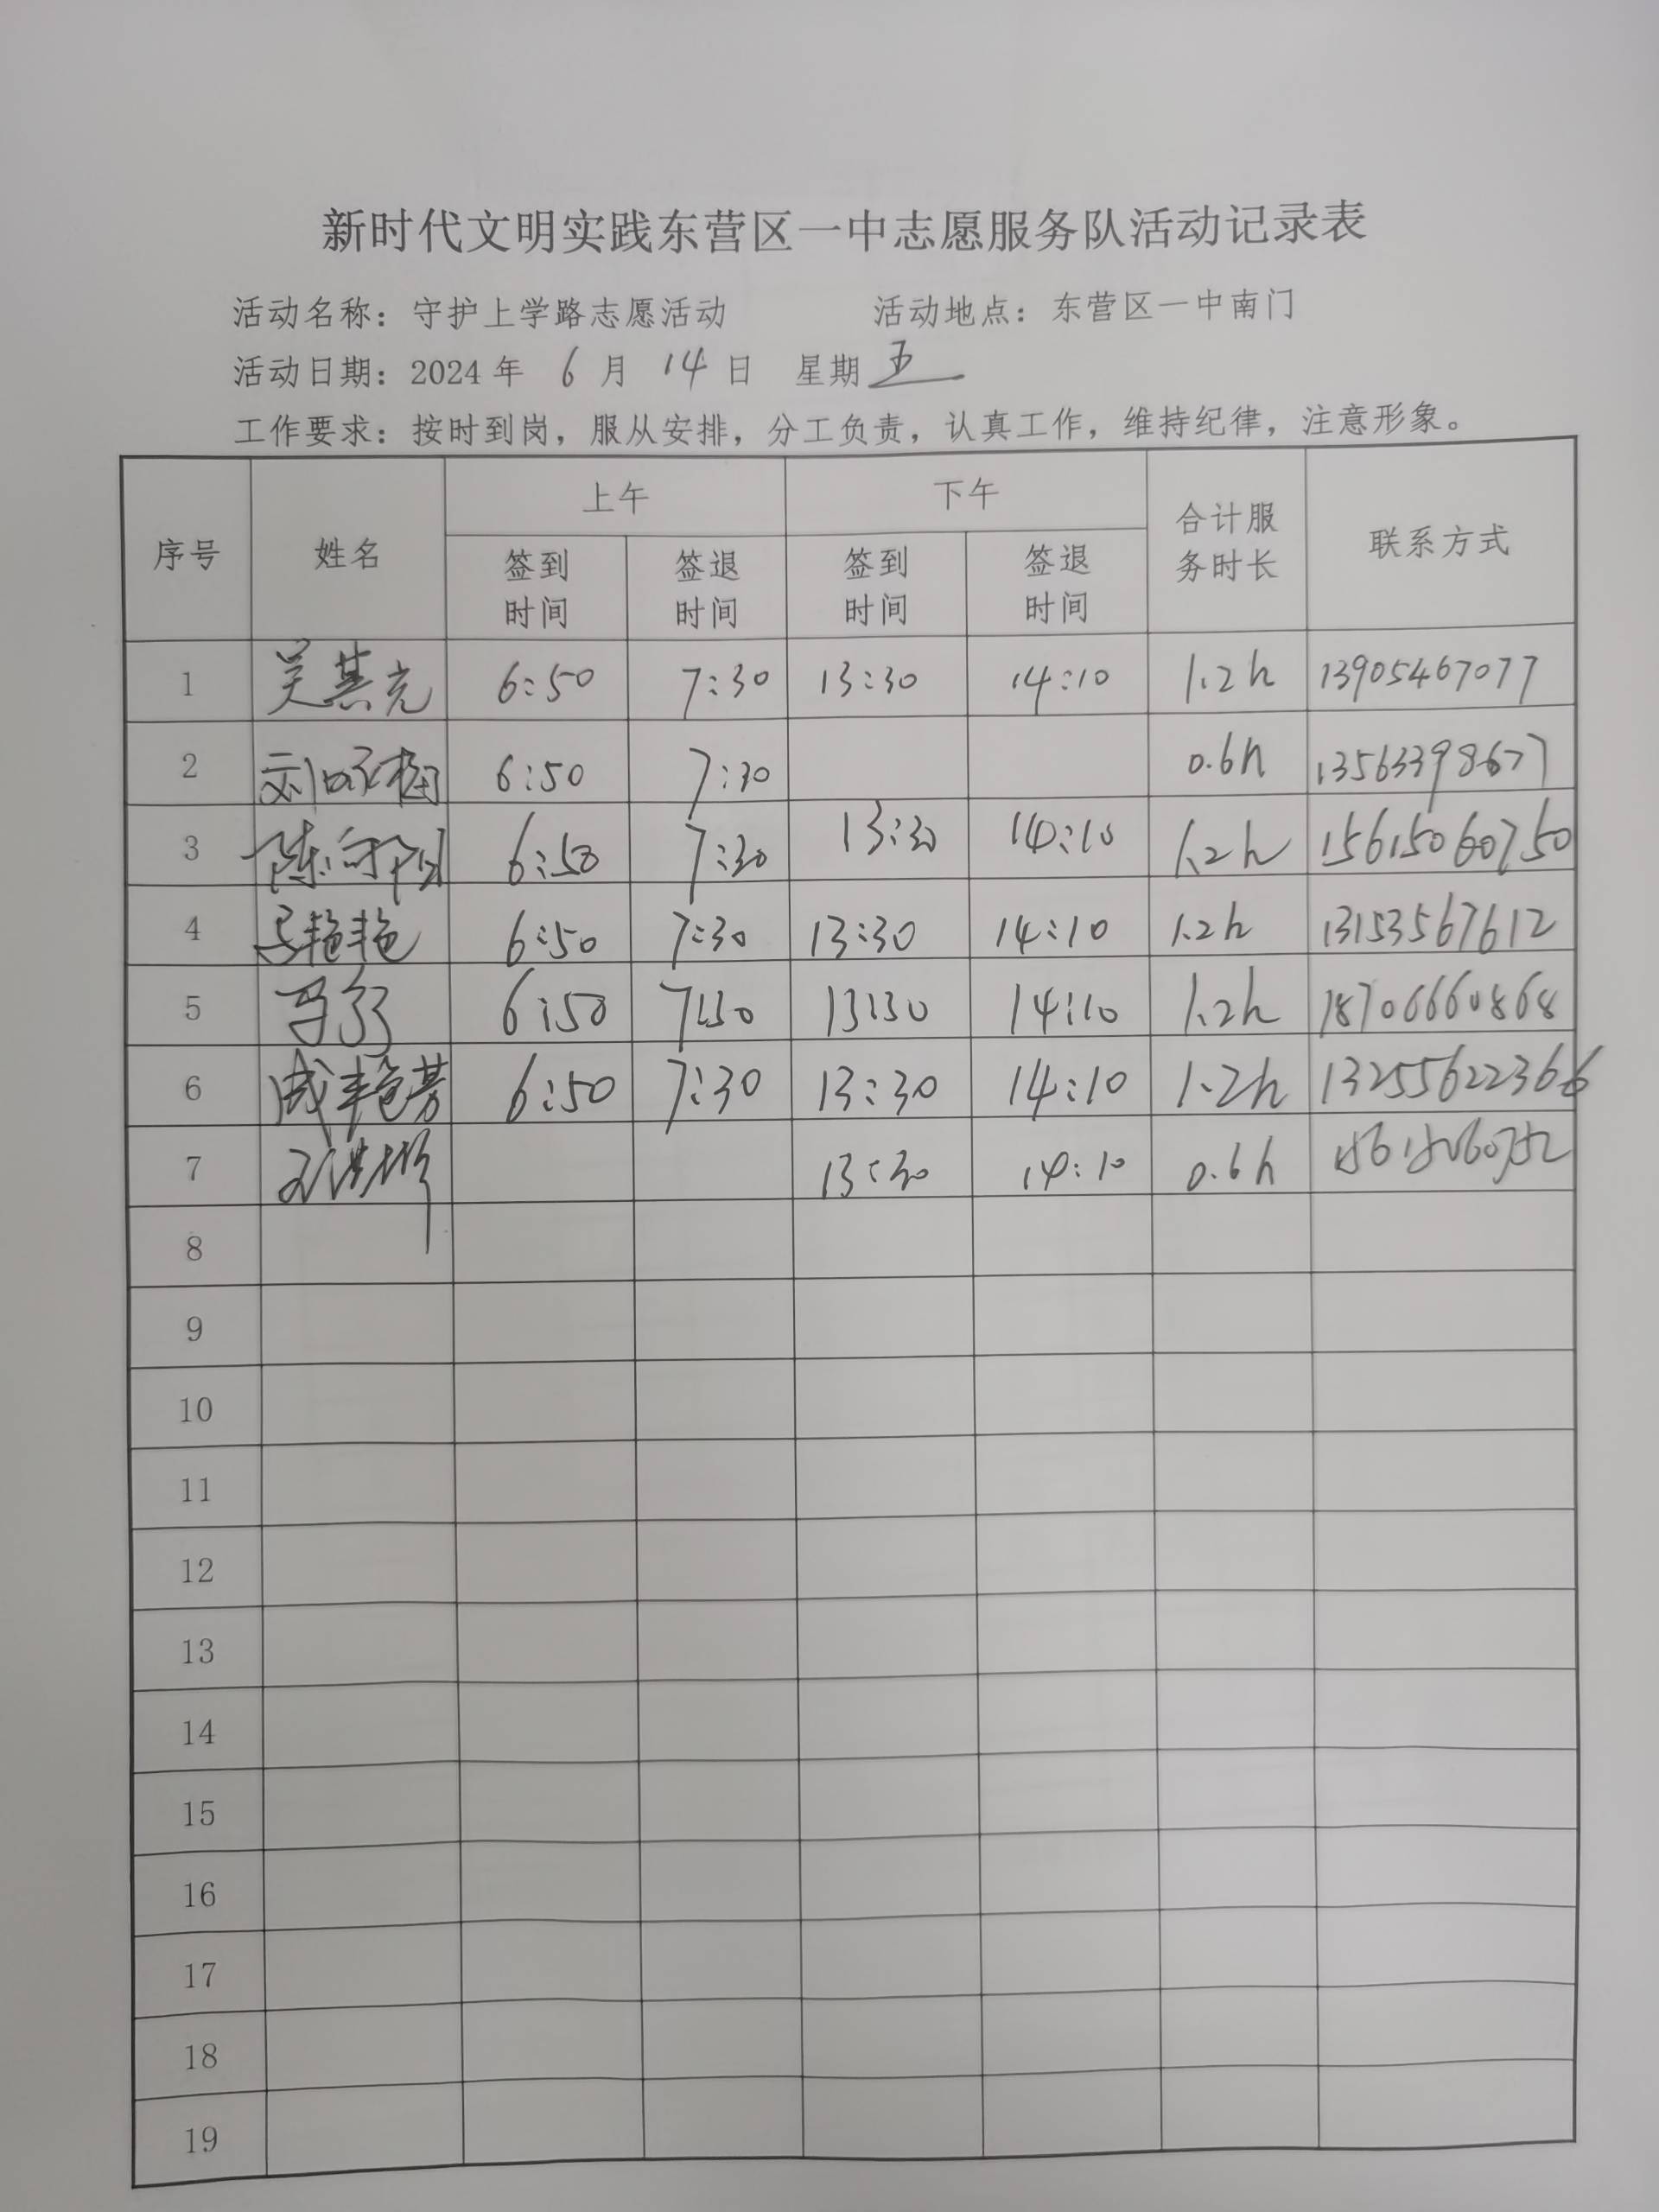 新时代文明实践东营区一中志愿服务队活动记录表
活动名称：守护上学路志愿活动 活动地点：东营区一中南门
活动日期：2024年 6 月 14 日 星期 五
工作要求：按时到岗，服从安排，分工负责，认真工作，维持纪律，注意形象。
序号 姓名 上午 下午 合计服务时长 联系方式
签到时间 签退时间 签到时间 签退时间
1 吴其克 6:50 7:30 13:30 14:10 1.2h 13905467077
2 6:50 7:30 0.6h 13563398677
3 6:50 7:30 13:30 14:10 1.2h 15615060750
4 马艳艳 6:50 7:30 13:30 14:10 1.2h 13153567612
5 6:50 7:30 13:30 14:10 1.2h 18706660868
6 成艳芳 6:50 7:30 13:30 14:10 1.2h 13255622366
7 13:30 14:10 0.6h
8
9
10
11
12
13
14
15
16
17
18
19